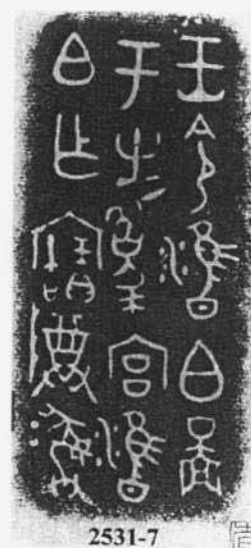 王令雍白啚
于㞢爲宮雍
白乍寶尊彝
2531-7